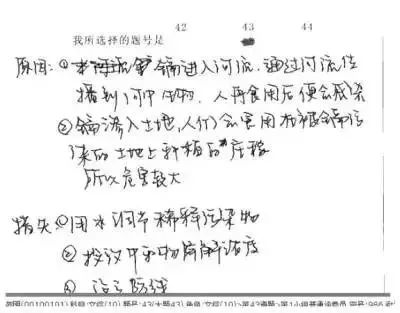 42 43 44
我所选择的题号是
原因：①镉进入河流，通过河流传
播到河中生物，人再食用后便会感染
②镉渗入土地，人们会食用被镉污
染的土地上种植的庄稼
所以危害较大
措失①用水调节稀释污染物
②投议中和物降解浓度
③设立防线